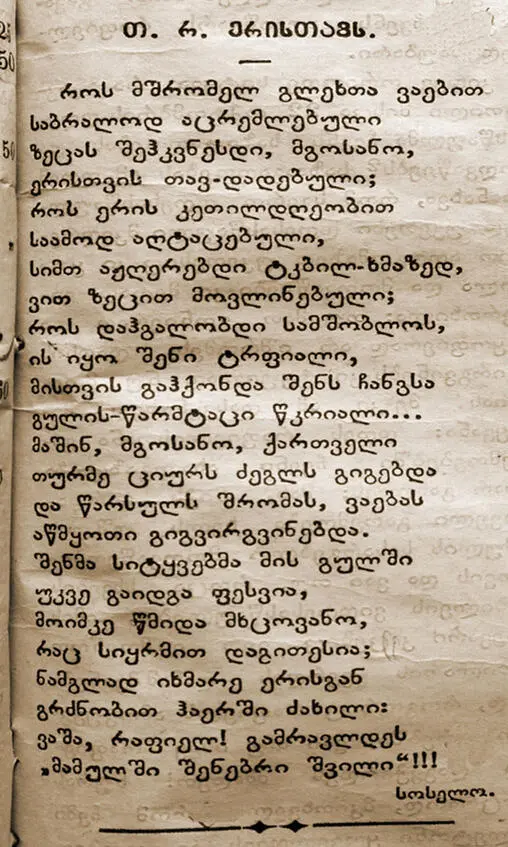 თ. რ. ერისთავს.
როს მშრომელ გლეხთა ვაებით
საბრალოდ აცრემლებული
ზეცას შეჰკვნესდი, მგოსანო,
ერისთვის თავ-დადებული;
როს ერის კეთილდღეობით
საამოდ აღტაცებული,
სიმთ აჟღერებდი ტკბილ-ხმაზედ,
ვით ზეცით მოვლინებული;
როს დაჰგალობდი სამშობლოს,
ის იყო შენი ტრფიალი,
მისთვის გაჰქონდა შენს ჩანგსა
გულის-წარმტაცი წკრიალი...
მაშინ, მგოსანო, ქართველი
თურმე ციურს ძეგლს გიგებდა
და წარსულს შრომას, ვაებას
აწმყოთი გიგვირგვინებდა.
შენმა სიტყვებმა მის გულში
უკვე გაიდგა ფესვია,
მოიმკე წმიდა მხცოვანო,
რაც სიყრმით დაგითესია;
ნამგლად იხმარე ერისგან
გრძნობით ჰაერში ძახილი:
ვაშა, რაფიელ! გამრავლდეს
„მამულში შენებრი შვილი“!!!
სოსელო.
25
50
50